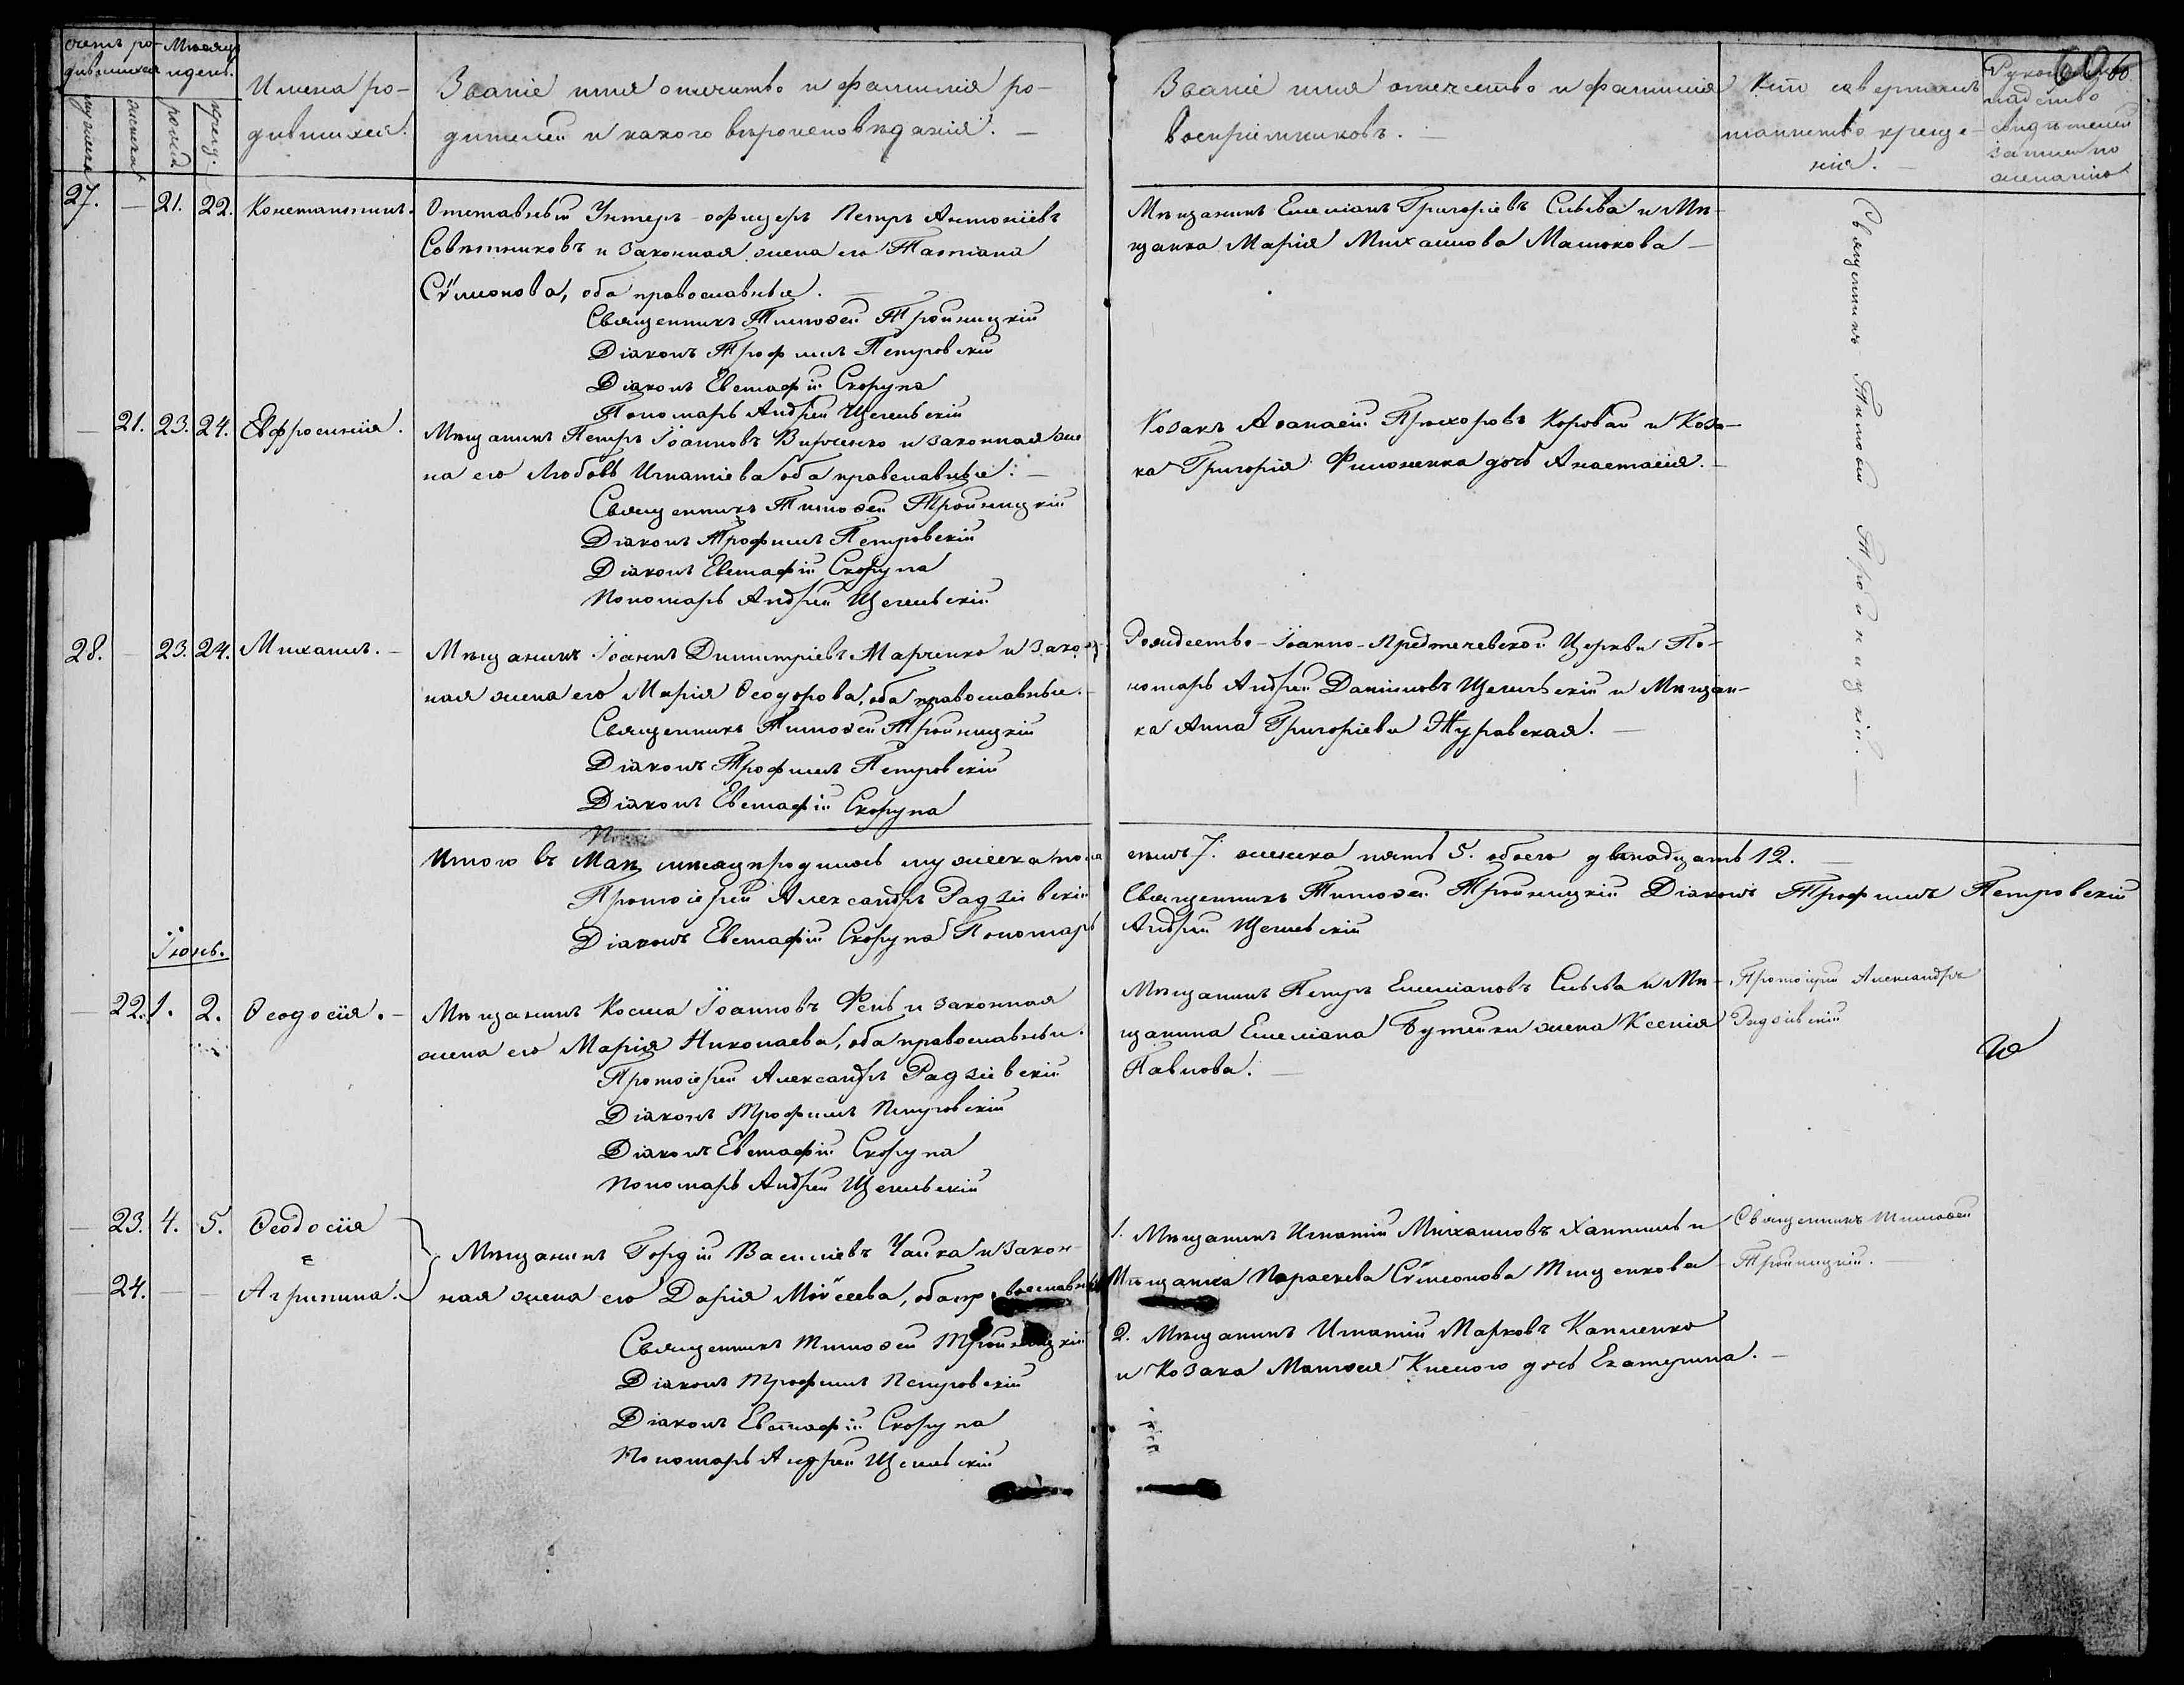 Счетъ ро-
дившихся
Мѣсяцъ
и день.
мужеска
женска
рожд.
крещ.
Имена ро-
дившихся.
Званіе имя отечество и фамилія ро-
дителей и какого вѣроисповѣданія. —
Званіе имя отечество и фамилія
воспріемниковъ. —
Кто совершалъ
таинство креще-
нія. —
Рукопри
кладство
свидѣтелей
записи по
желанію
27. — 21. 22. Константинъ.
Отставный Унтеръ-офицеръ Петръ Антоніевъ
Совѣтниковъ и законная жена его Татіана
Сѵмонова, оба православные. —
Священникъ Тимоѳей Тройницкій
Діаконъ Трофимъ Петровскій
Діаконъ Евстафій Скорупа
Пономарь Андрей Щегельскій
Мѣщанинъ Емеліанъ Григоріевъ Сльва и Мѣ-
щанка Марія Михаилова Малюкова —
Священникъ Тимоѳей Тройницкій. —
— 21. 23. 24. Евфросинія.
Мѣщанинъ Петръ Іоанновъ Вирченко и законная же
на его Любовь Игнатіева оба православные. —
Священникъ Тимоѳей Тройницкій
Діаконъ Трофимъ Петровскій
Діаконъ Евстафій Скорупа
Пономарь Андрей Щегельскій
Козакъ Аѳанасій Прохоровъ Коровай и Коза-
ка Григорія Филоненка дочь Анастасія. —
28. — 23. 24. Михаилъ. —
Мѣщанинъ Іоаннъ Димитріевъ Марченко и закон
ная жена его Марія Ѳеодорова, оба православные. —
Священникъ Тимоѳей Тройницкій
Діаконъ Трофимъ Петровскій
Діаконъ Евстафій Скорупа
Рождество-Іоанно-Предтечевской Церкви По-
номарь Андрей Даніиловъ Щегельскій и Мѣщан-
ка Анна Григоріева Журавская. —
Итого въ Маѣ мѣсяцѣ родилось мужеска пола семь 7. женска пять 5. обоего двѣнадцать 12. —
Протоіерей Александръ Радзіевскій Священникъ Тимоѳей Тройницкій Діаконъ Трофимъ Петровскій
Діаконъ Евстафій Скорупа Пономарь Андрей Щегельскій
Іюнь.
— 22. 1. 2. Ѳеодосія. —
Мѣщанинъ Косма Іоанновъ Фень и законная
жена его Марія Николаева, оба православные.
Протоіерей Александръ Радзіевскій
Діаконъ Трофимъ Петровскій
Діаконъ Евстафій Скорупа
Пономарь Андрей Щегельскій
Мѣщанинъ Петръ Емеліановъ Сльва и Мѣ-
щанина Емеліана Бутейки жена Ксенія
Павлова. —
Протоіерей Александръ
Радзіевскій
— 23. 4. 5. Ѳеодосія
и
— 24. — — Агрипина.
Мѣщанинъ Гордій Василіевъ Чайка и закон-
ная жена его Дарія Моѵсеева, оба православные
Священникъ Тимоѳей Тройницкій
Діаконъ Трофимъ Петровскій
Діаконъ Евстафій Скорупа
Пономарь Андрей Щегельскій
1. Мѣщанинъ Игнатій Михаиловъ и
Мѣщанка Параскева Сѵмеонова Тищенкова
2. Мѣщанинъ Игнатій Марковъ Капленко
и Козака Матѳея дочь Екатерина. —
Священникъ Тимоѳей
Тройницкій. —